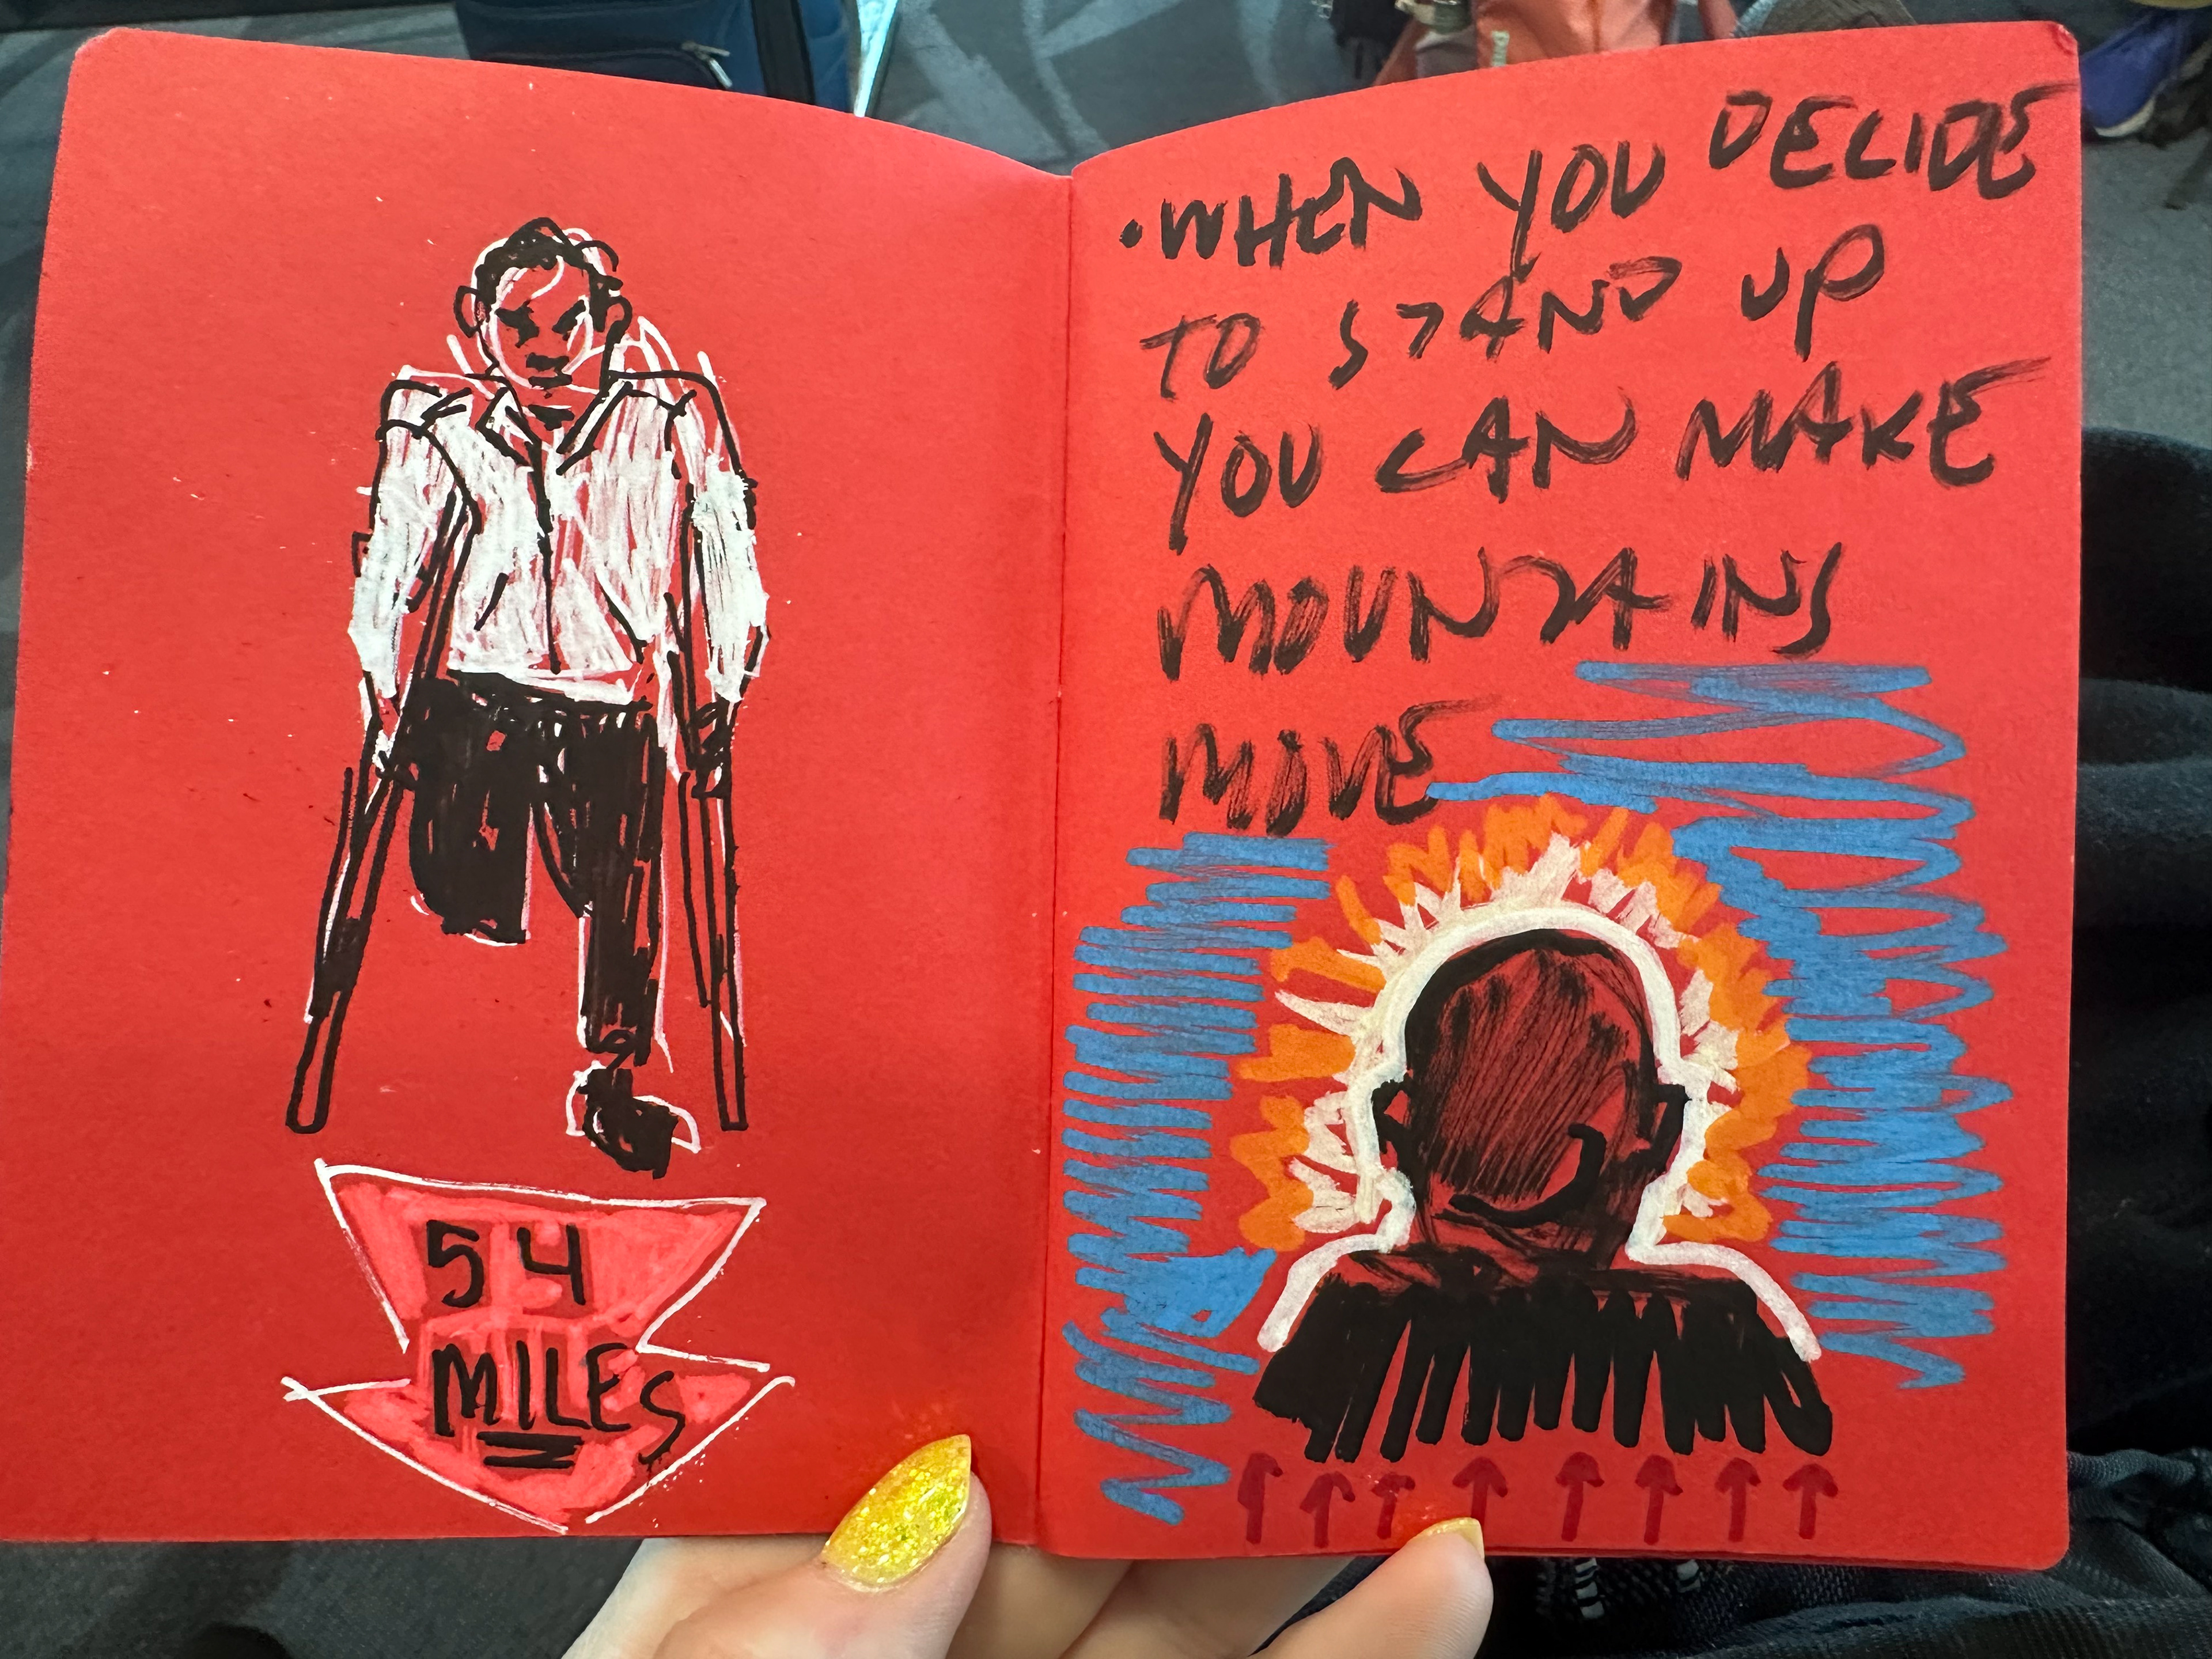 54
MILES
·WHEN YOU DECIDE
TO STAND UP
YOU CAN MAKE
MOUNTAINS
MOVE